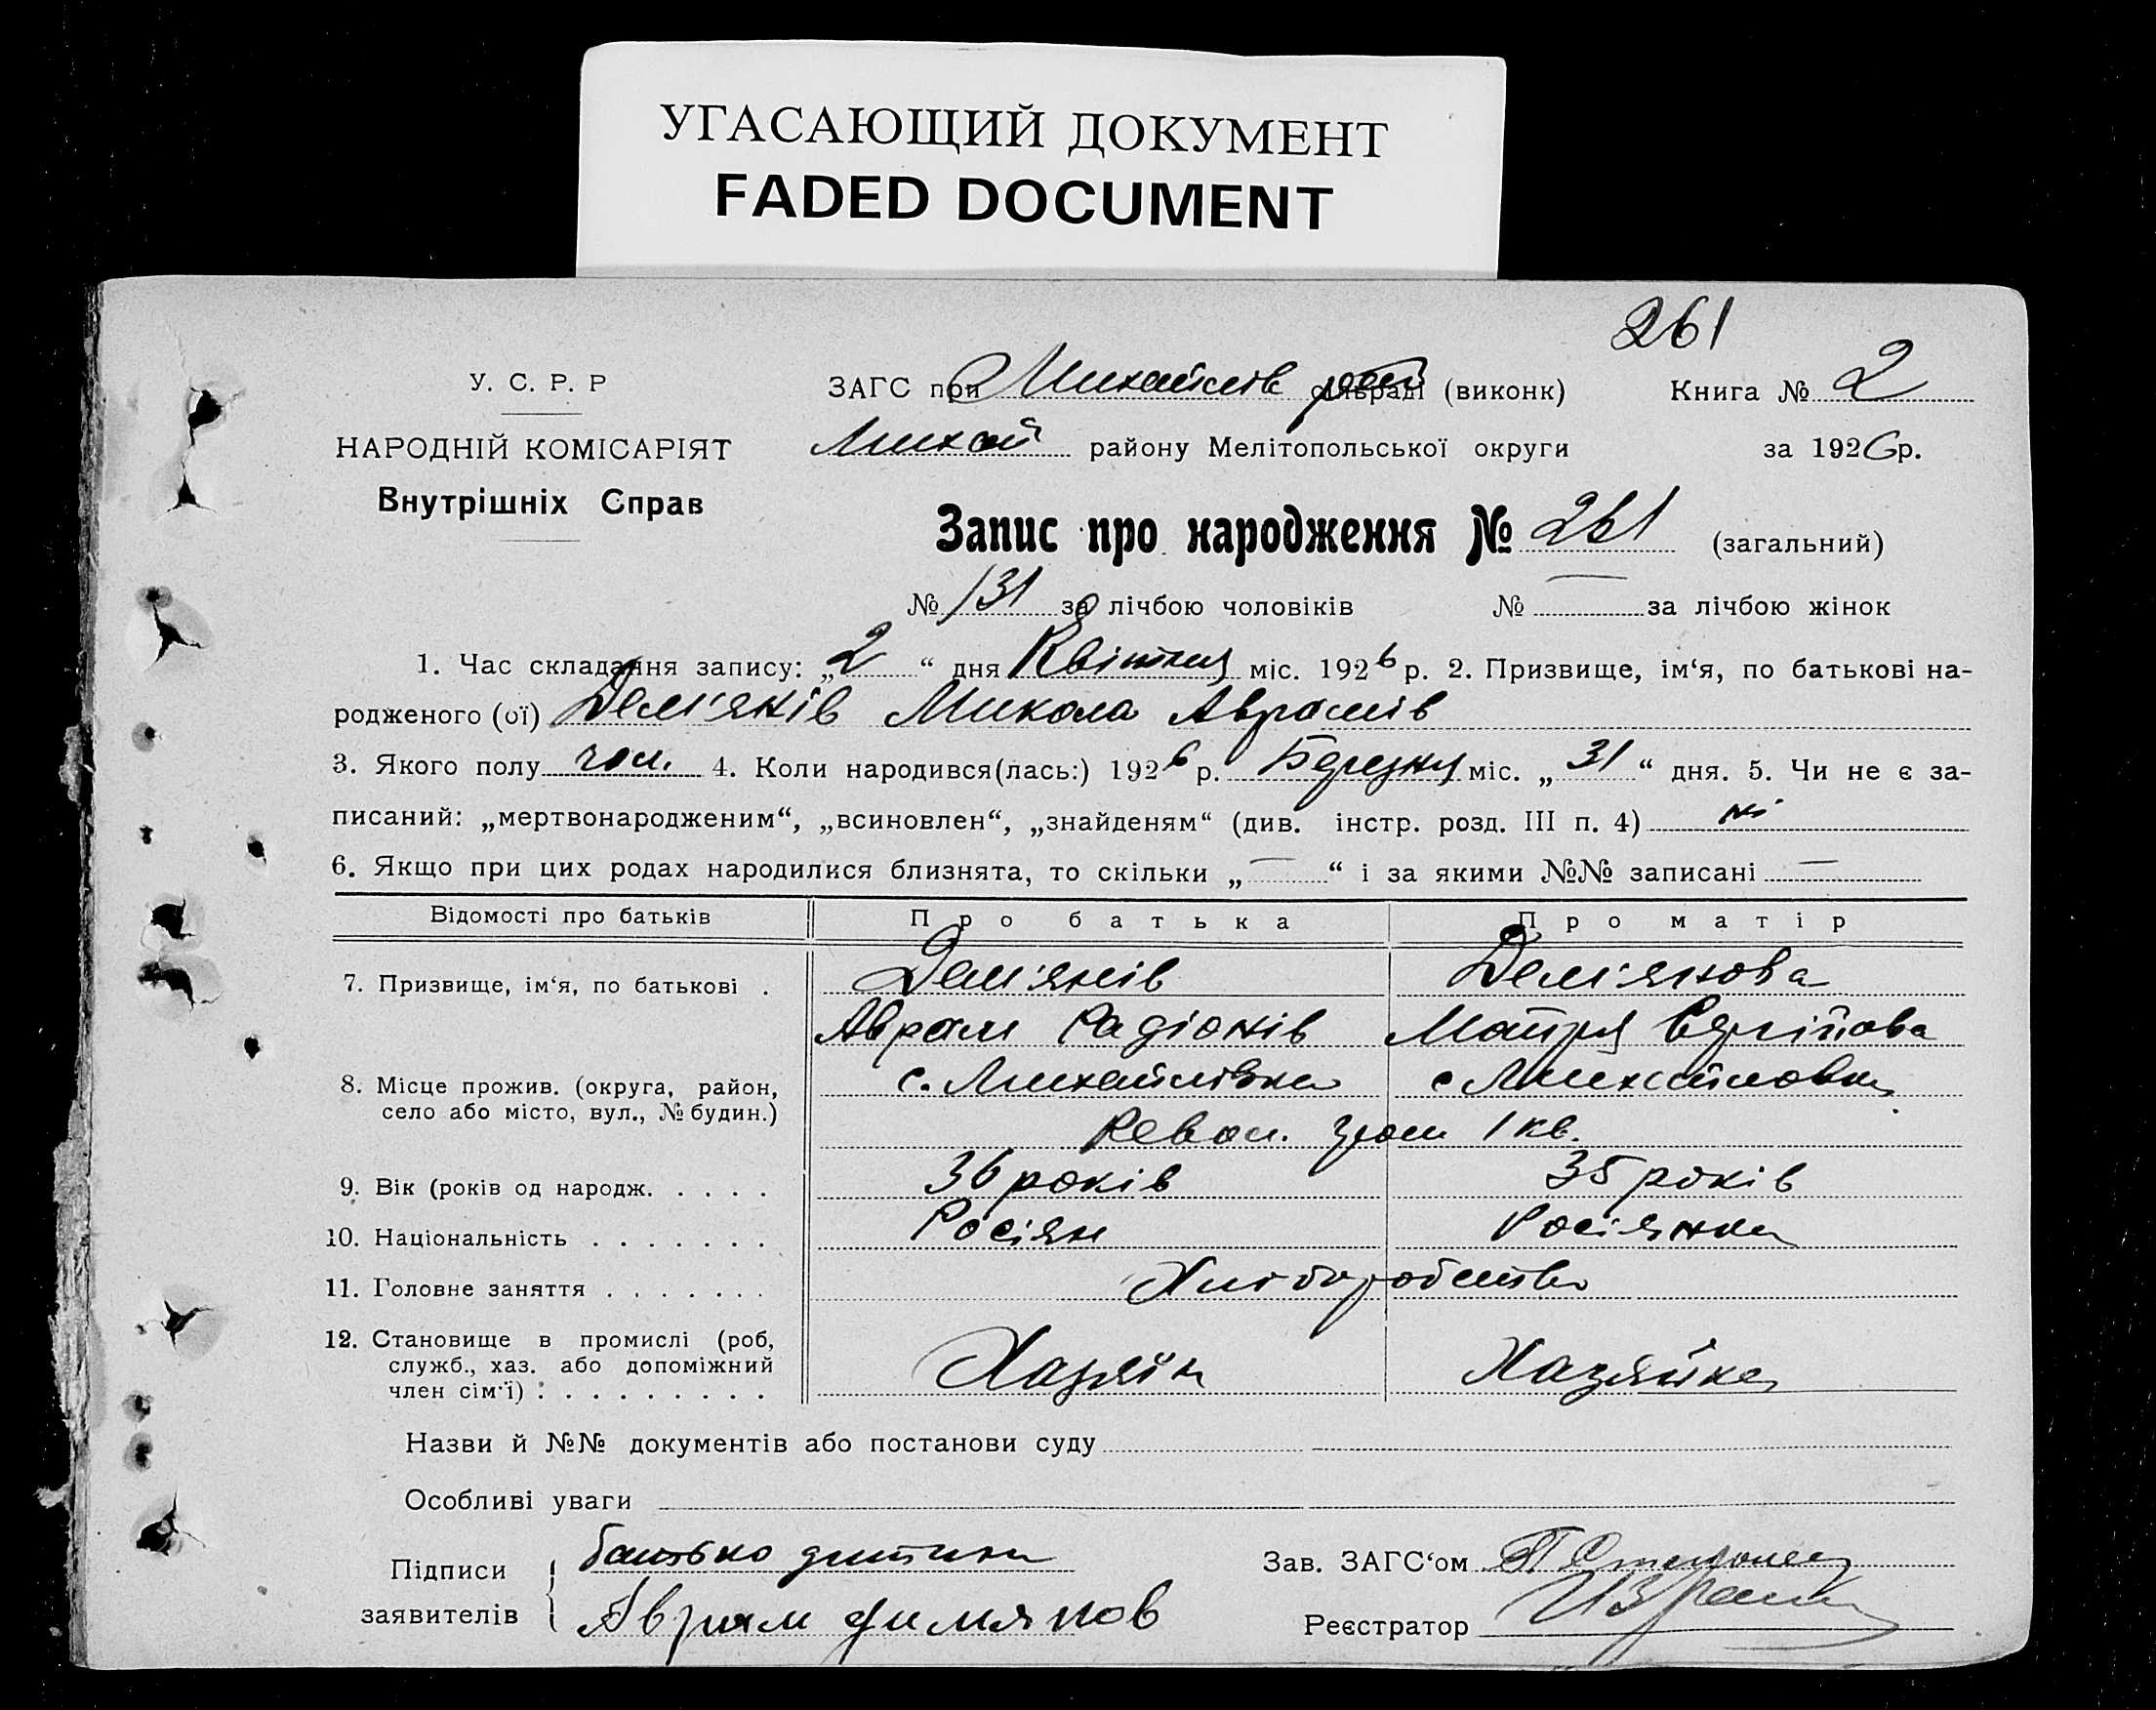 УГАСАЮЩИЙ ДОКУМЕНТ
FADED DOCUMENT
261
У. С. Р. Р
НАРОДНІЙ КОМІСАРІЯТ
Внутрішніх Справ
ЗАГС при Михайлів сільраді (виконк) Книга № 2
Михай району Мелітопольської округи за 1926 р.
Запис про народження № 261 (загальний)
№ 131 за лічбою чоловіків № — за лічбою жінок
1. Час складання запису: „2“ дня Квітня міс. 1926 р. 2. Призвище, ім‘я, по батькові на-
родженого (ої) Дем'янів Микола Аврамів
3. Якого полу чол. 4. Коли народився(лась:) 1926 р. Березня міс. „31“ дня. 5. Чи не є за-
писаний: „мертвонародженим“, „всиновлен“, „знайденям“ (див. інстр. розд. III п. 4) ні
6. Якщо при цих родах народилися близнята, то скільки „—“ і за якими №№ записані —
Відомості про батьків Про батька Про матір
7. Призвище, ім‘я, по батькові . Дем'янів Дем'янова
Аврам Радіонів Мотря Сергійова
8. Місце прожив. (округа, район, с. Михайлівка с Михайловка
село або місто, вул., № будин.)
Револ. гром 1 кв.
9. Вік (років од народж. . . . . 36 років 35 років
10. Національність . . . . . . . Росіян Росіянка
11. Головне заняття . . . . . . . Хліборобство
12. Становище в промислі (роб, Хазяїн Хазяйка
служб., хаз. або допоміжний
член сім‘ї) : . . . . . . . . .
Назви й №№ документів або постанови суду
Особливі уваги
Підписи батько дитини Зав. ЗАГС‘ом
заявителів Аврам Димянов Реєстратор